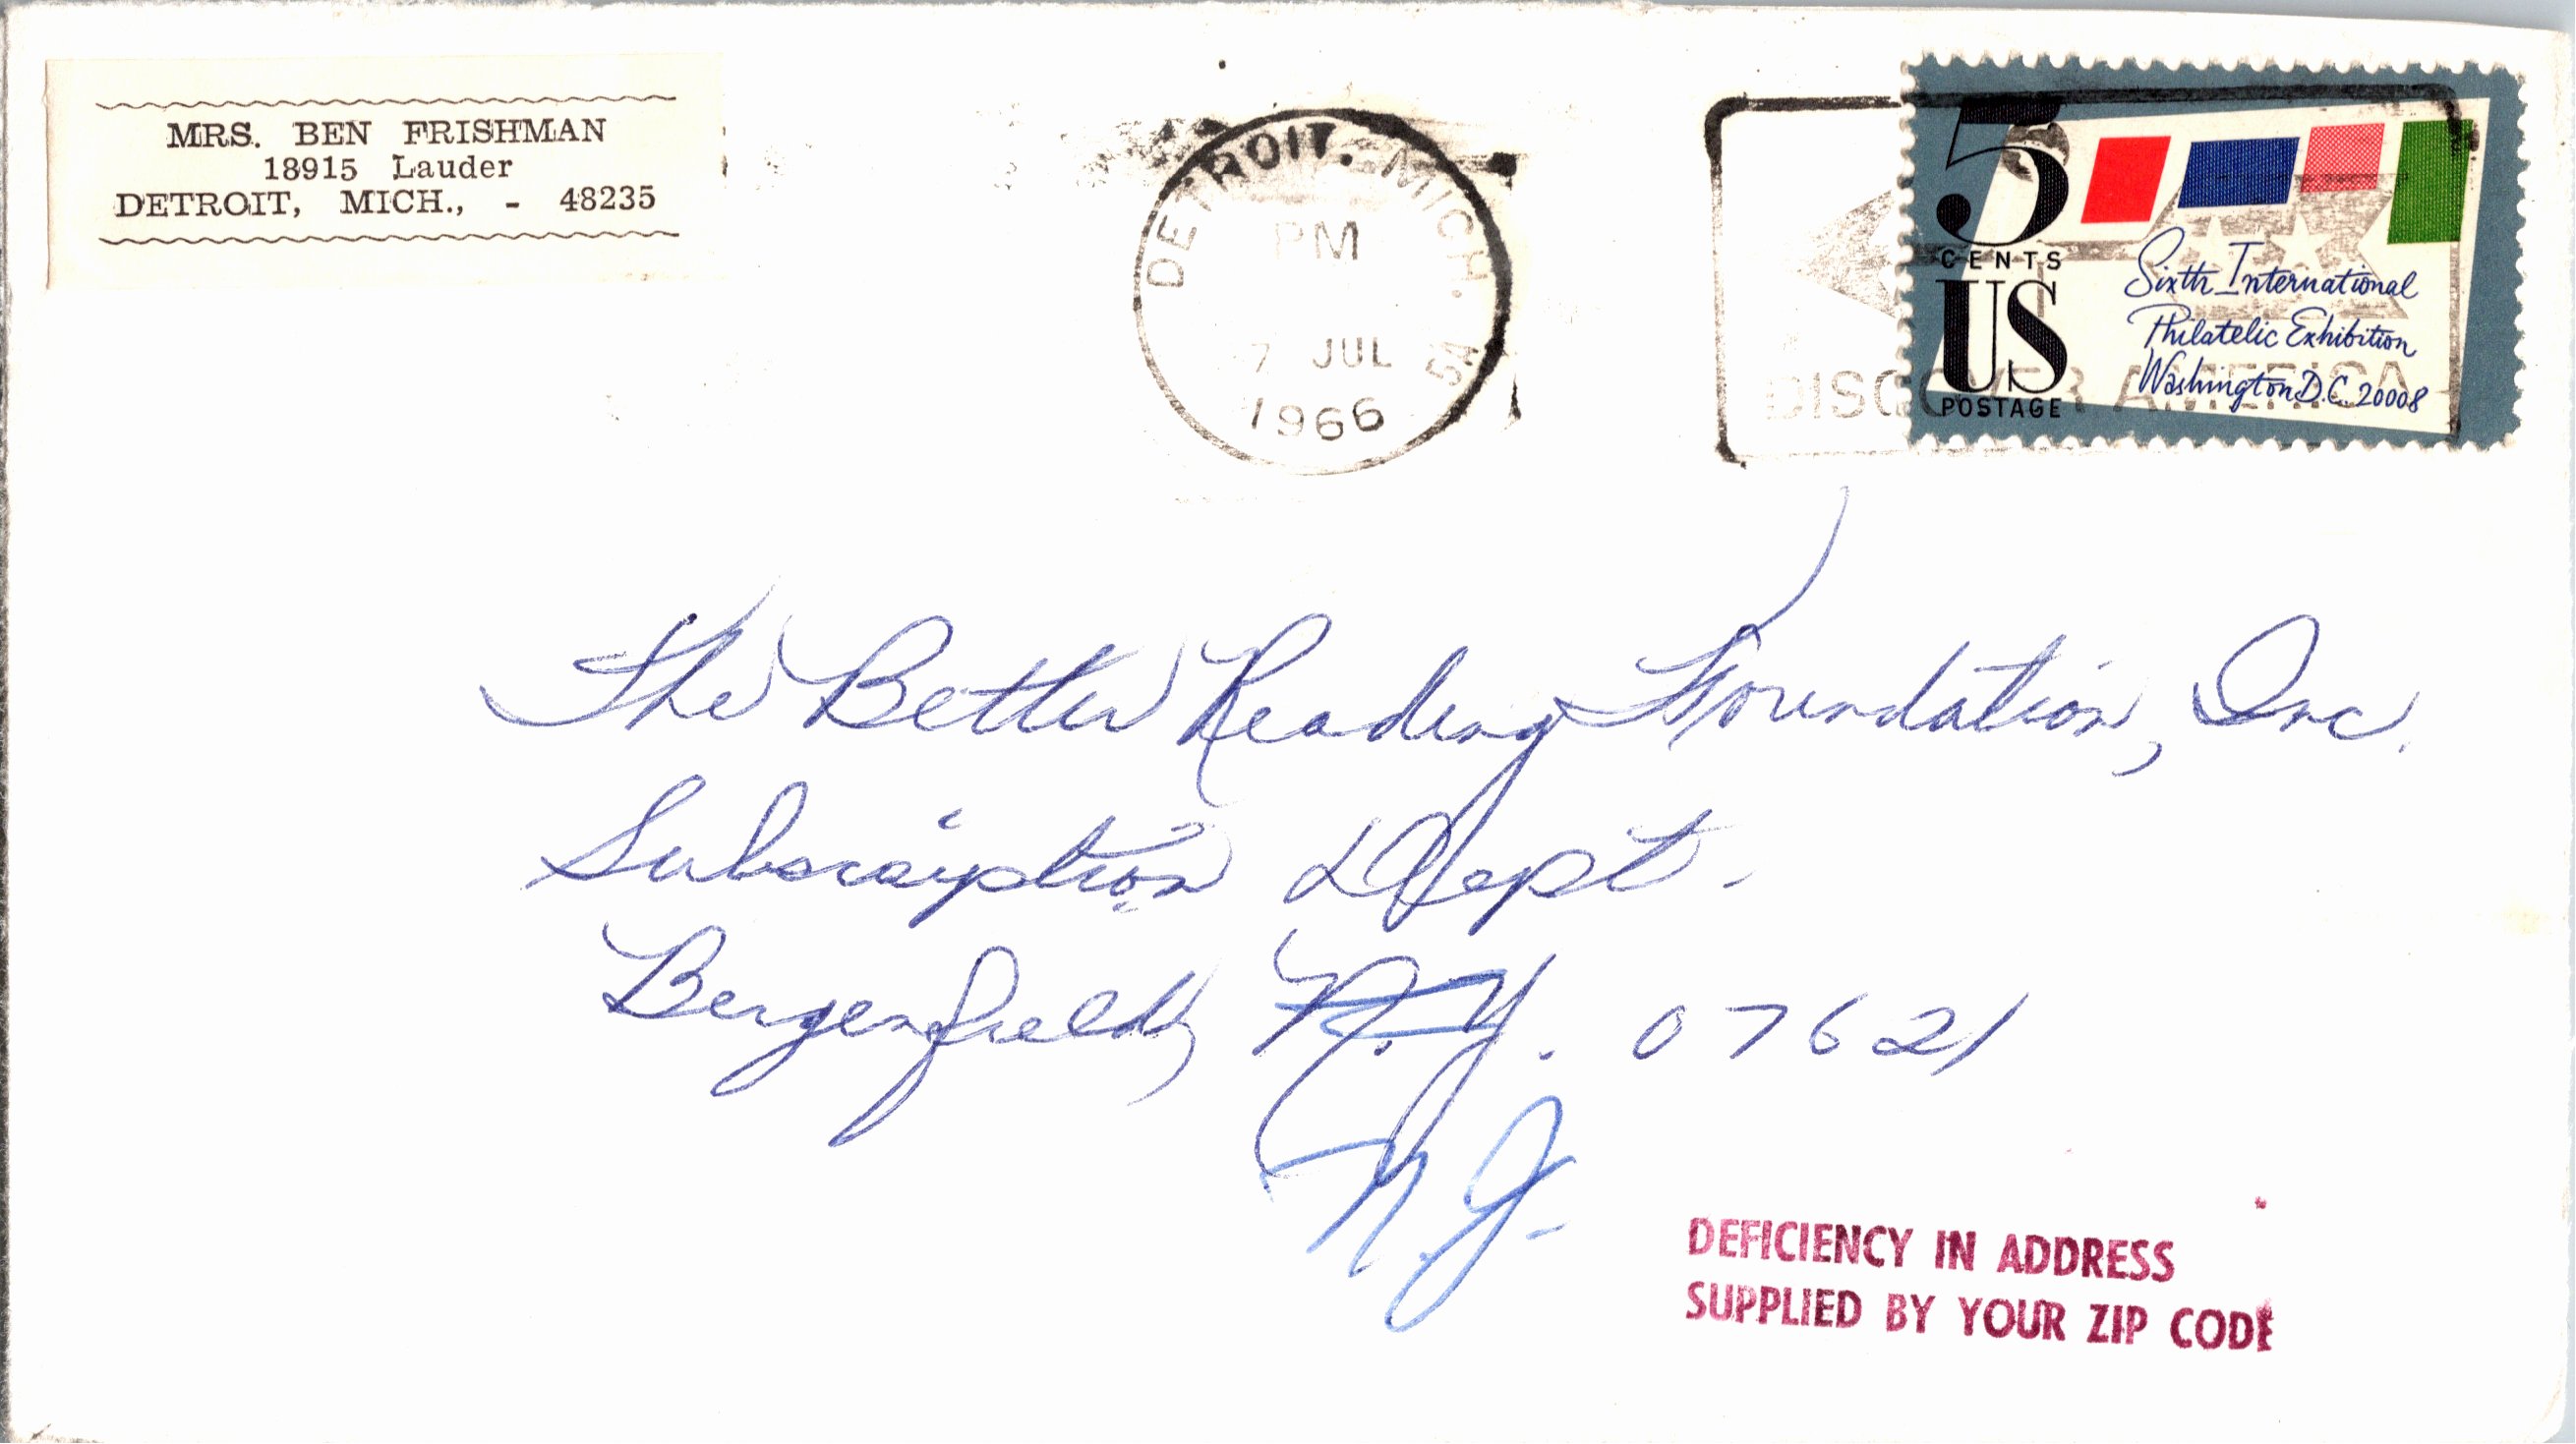 MRS. BEN FRISHMAN
18915 Lauder
DETROIT, MICH., - 48235
DETROIT, MICH. 5A
PM
7 JUL
1966
DISCOVER AMERICA
5
CENTS
US
POSTAGE
Sixth International
Philatelic Exhibition
Washington D.C. 20008
The Better Reading Foundation, Inc.
Subscription Dept.
Bergenfield, N.Y. 07621
N.J.
DEFICIENCY IN ADDRESS
SUPPLIED BY YOUR ZIP CODE